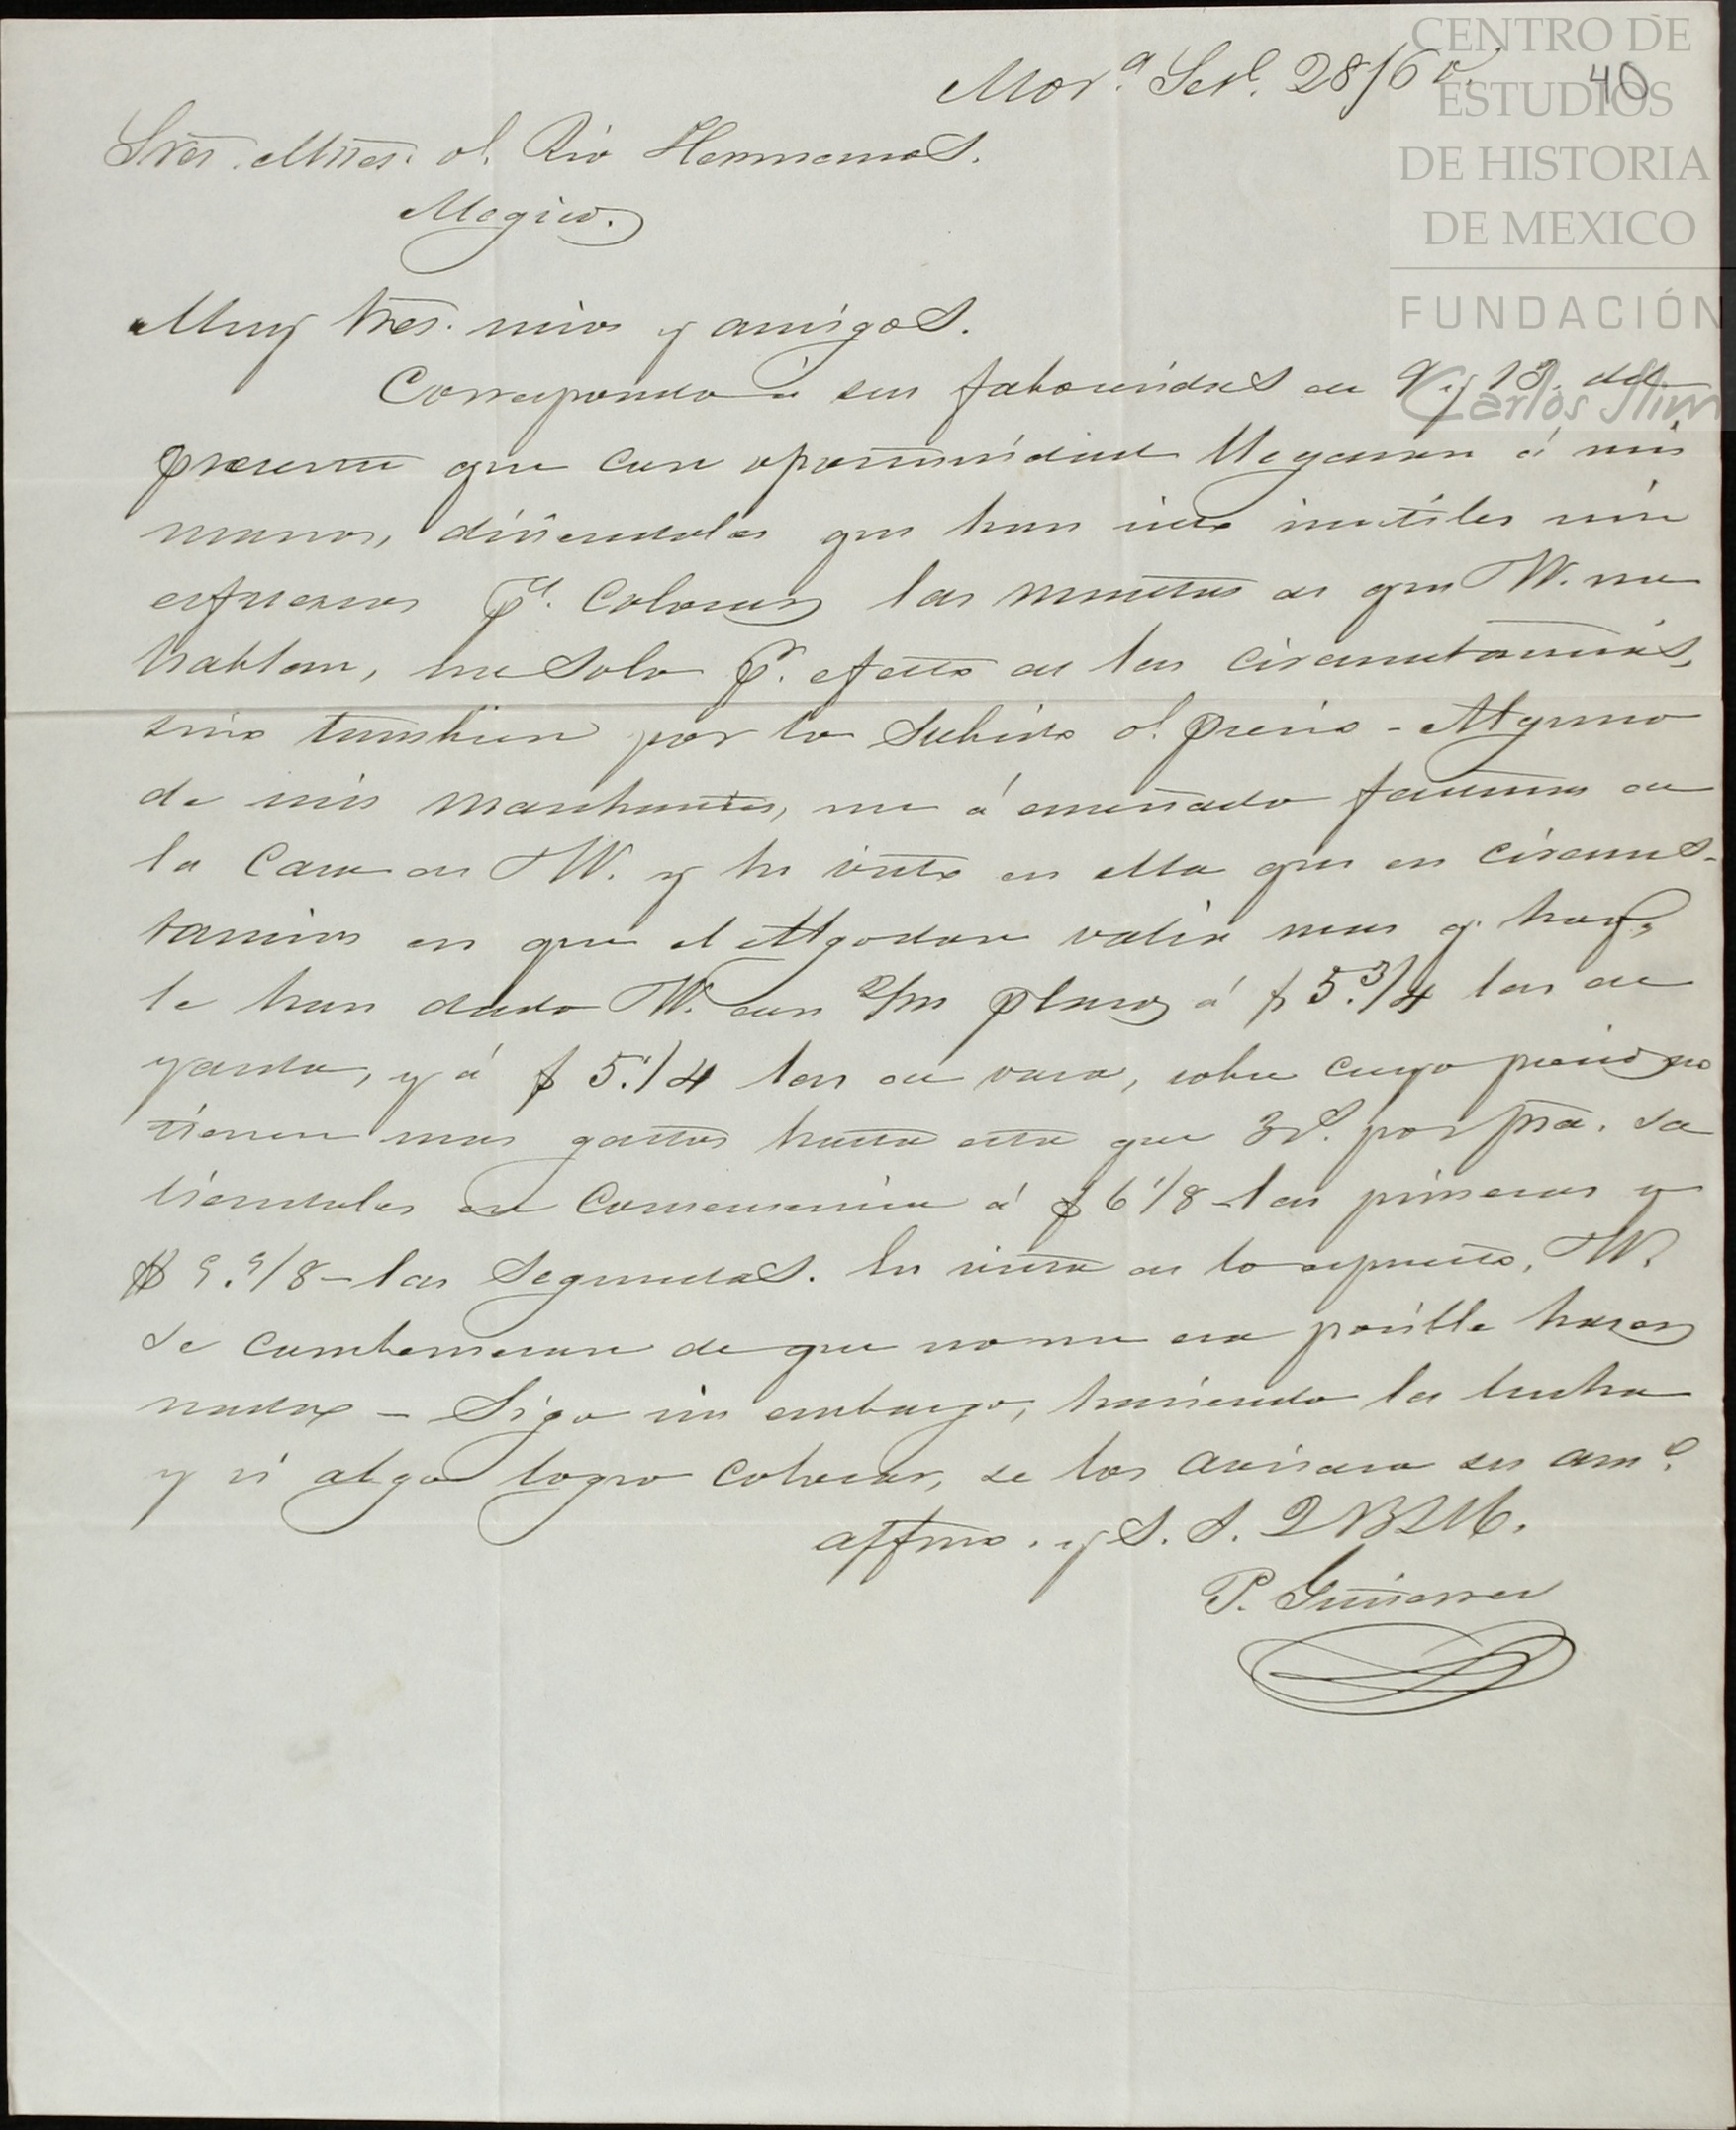 CENTRO DE
ESTUDIOS
DE HISTORIA
DE MEXICO
FUNDACIÓN
Carlos Slim
40
Mor.ª Set.e 28/6
Sres. Mtnes. d. Rio Hermanos.
Megico.
Muy Sres. mios y amigos.
Correspondo á sus faborecidas de 9 y 13. del
presente que con oportunidad llegaron á mis
manos, diciendoles que han sido inutiles mis
esfuerzos p.a colocar las mantas de que VV. me
hablan, no solo p.r efecto de las circunstancias,
sino tambien por lo subido d. precio - Alguno
de mis marchantes, me á enseñado facturas de
la casa de VV. y he visto en ella que en circuns-
tancias en que el Algodon valia mas q. hoy,
le han dado VV. con 2/m plazo á $ 5.3/4 las de
yarda, y á $ 5.1/4 las de vara, sobre cuyo precio no
tienen mas gastos hasta esta que 3 rs. por pza. sa
liendoles en consecuencia á $ 6 1/8 - las primeras y
$ 5.5/8 - las segundas. En vista de lo espuesto, VV.
se combenceran de que no me era posible hacer
nada - Sigo sin embargo, haciendo la lucha
y si algo logro colocar, se los avisara su am.o
affmo. y S. S. Q B S M.
P. Gutierrez